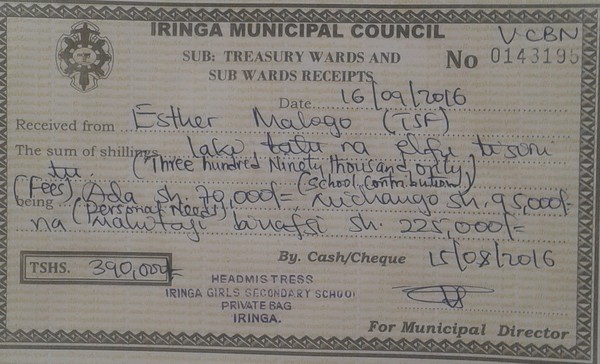 IRINGA MUNICIPAL COUNCIL
V-CBN
SUB: TREASURY WARDS AND
SUB WARDS RECEIPTS
No 0143195
Date 16/09/2016
Received from Esther Malogo (TSF)
The sum of shillings laki tatu na elfu tisini
tu. (Three hundred Ninety thousand only)
(Fees) Ada sh. 70,000/= (School contribution) Michango sh. 95,000/=
being na (Personal Needs) Mahitaji binafsi sh. 225,000/=
TSHS. 390,000/=
By. Cash/Cheque 15/08/2016
HEADMISTRESS
IRINGA GIRLS SECONDARY SCHOOL
PRIVATE BAG
IRINGA.
For Municipal Director